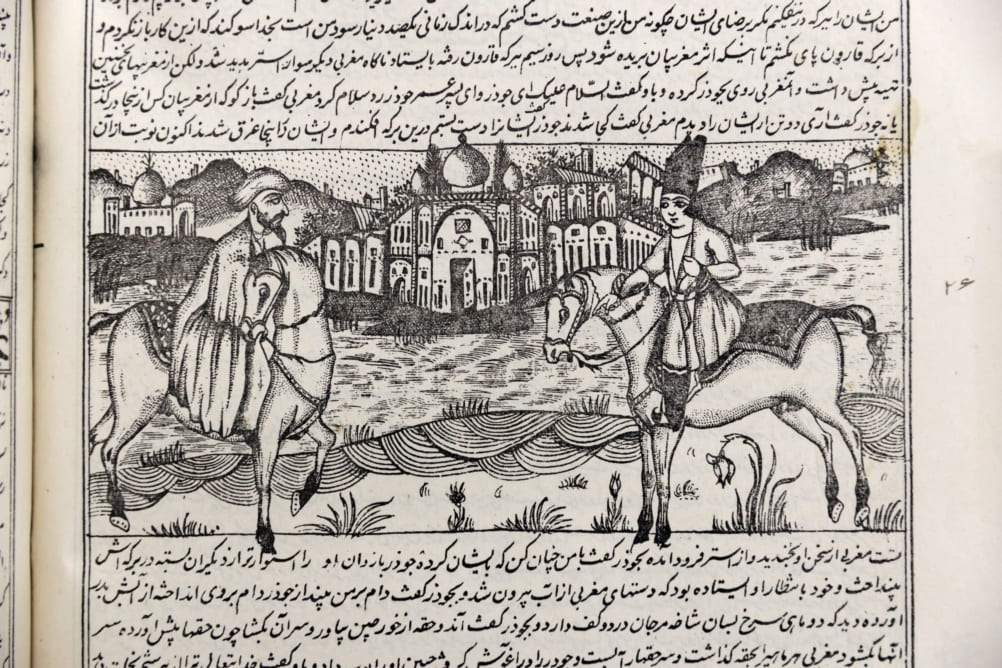 من ایشان را ببرکه درنیفکنم مگر برضای ایشان چگونه من ازین صنعت دست کشم که در اندک زمانی یکصد دینار سود من است بخدا سوگند که ازین کار باز نگردم و
از برکه قارون پای نکشم تا اینکه اثر مغربیان بریده شود پس روز سیم ببرکه قارون رفته بایستاد ناگاه مغربی دیگر سوار استر پدید شد ولکن از مغربیهای نخستین
تهیه بیش داشت و آنمغربی روی بجوذر کرده و باو گفت السّلام علیک ای جوذر و ای پسر عمر جوذر رد سلام کرد مغربی گفت بازگو که از مغربیان کس از اینجا درگذشت
یا نه جوذر گفت آری دو تن از ایشان را دیدم مغربی گفت کجا شدند جوذر گفت ایشانرا دست بستم درین برکه افکندم و ایشان در اینجا غرق شدند اکنون نوبت از آن
۲۶
تست مغربی از سخن او بخندید و از استر فرود آمده بجوذر گفت با من چنان کن که بایشان کرده جوذر بازوان او را استوارتر از دیگران بسته در برکه اش
بینداخت و خود بانتظار او ایستاده بود که دستهای مغربی از آب بیرون شد و بجوذر گفت دام بر من بینداز جوذر دام بروی انداخته از آبش بدر
آورده دید که دو ماهی سرخ بسان شاخه مرجان در دو کف دارد و بجوذر گفت آن دو حقه از خورجین بیاور و سر آن بگشا چون حقها پیش آورده سر